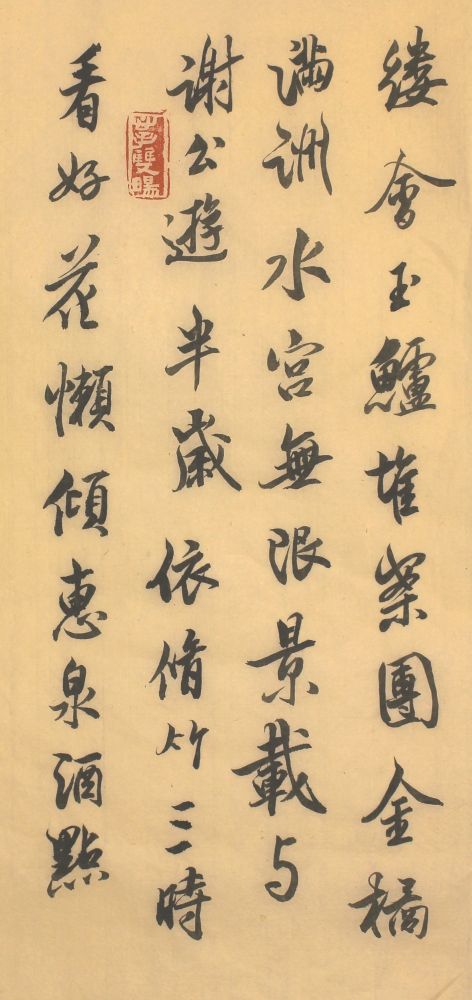 縷會玉鱸堆案團金橘
滿洲水宮無限景載与
謝公遊半歲依脩竹三時
看好花懶傾惠泉酒點